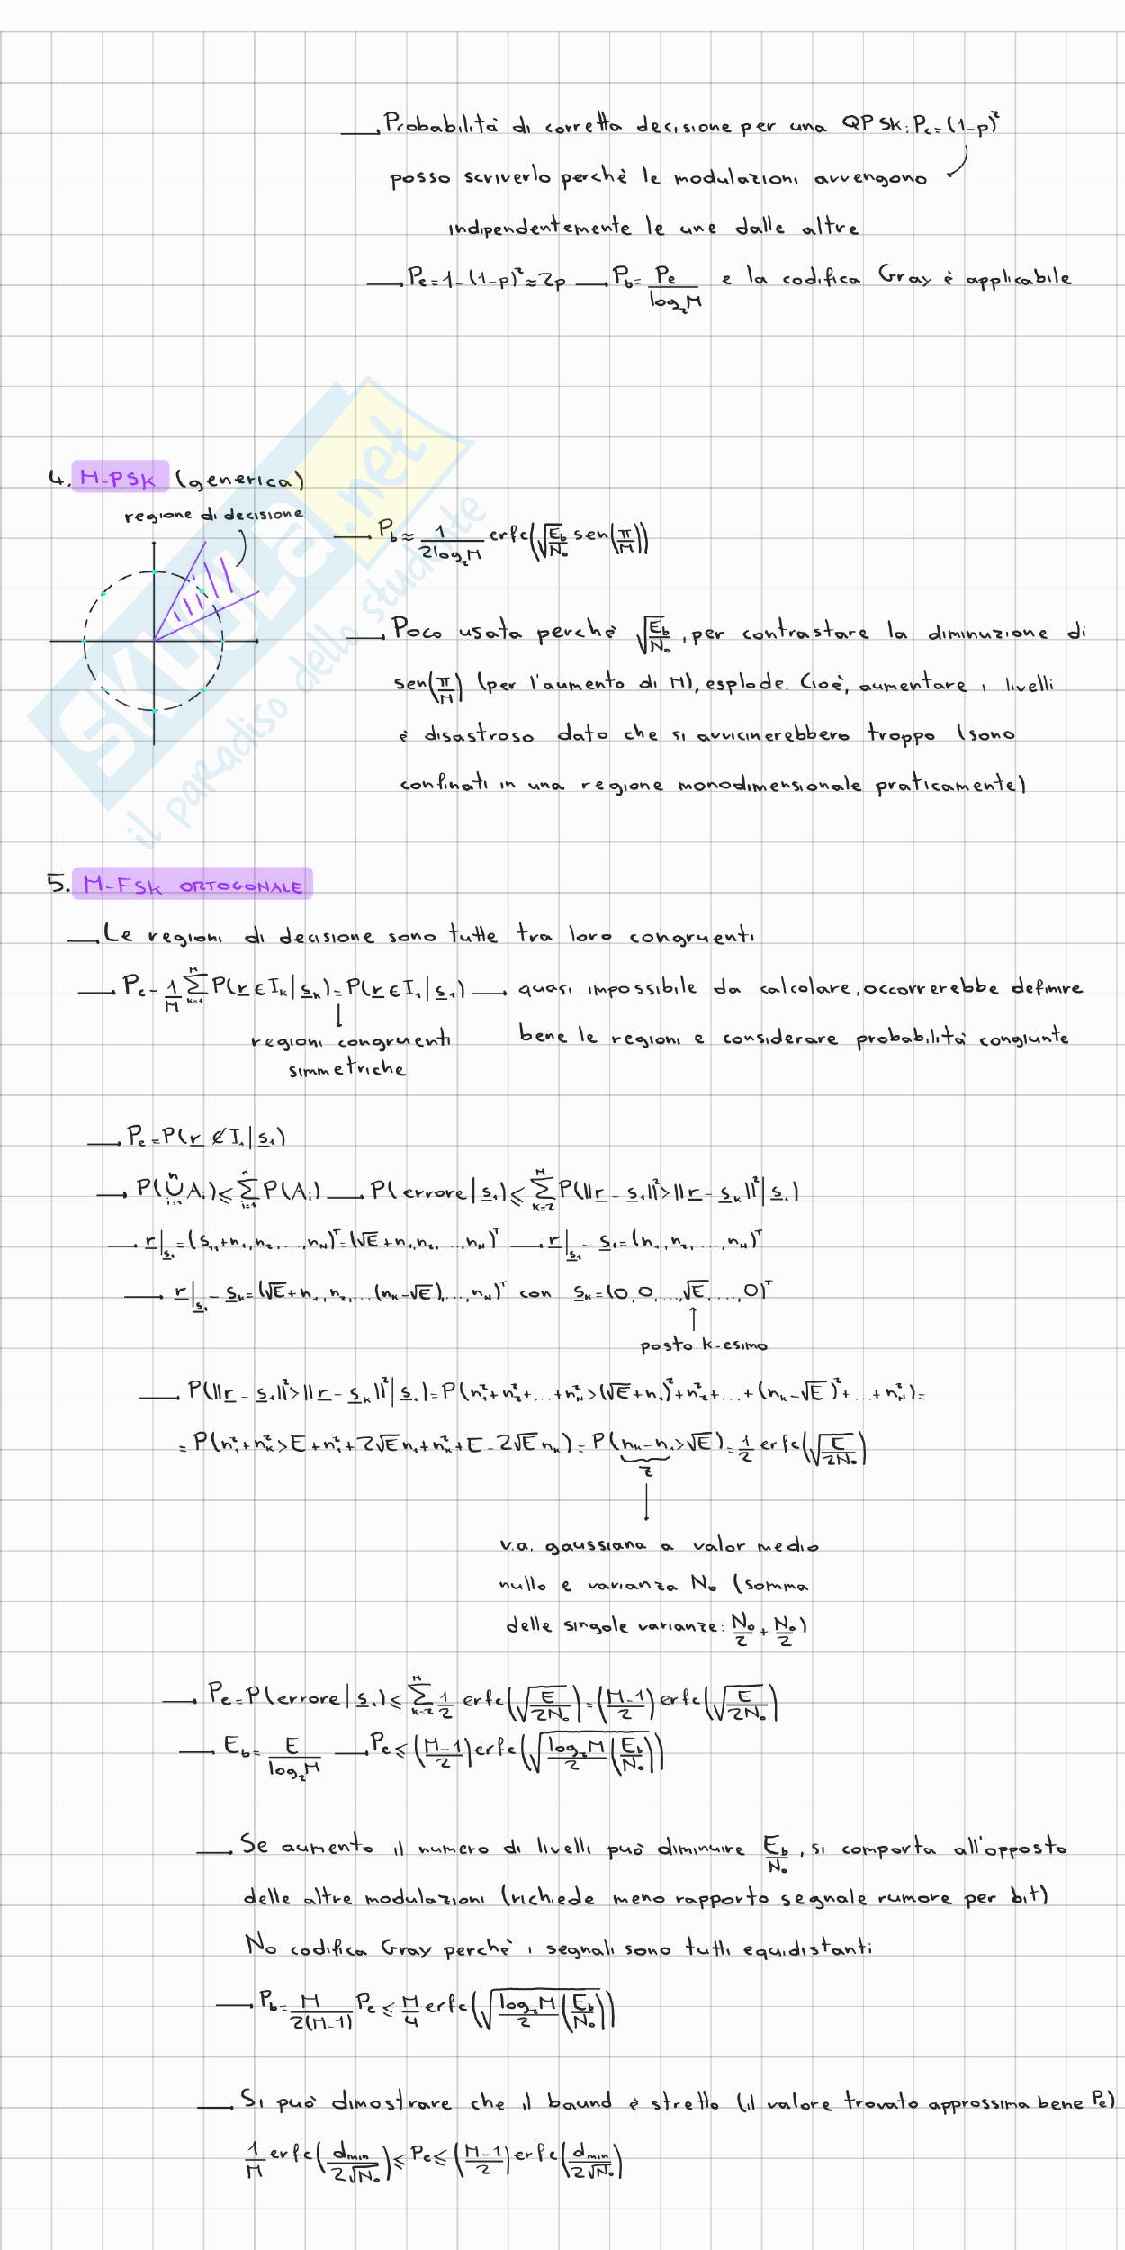 → Probabilità di corretta decisione per una QPSK: Pc=(1-p)²
posso scriverlo perchè le modulazioni avvengono
indipendentemente le une dalle altre
→ Pe=1-(1-p)²≈2p → Pb=Pe/log₂M e la codifica Gray è applicabile
4. M-PSK (generica)
regione di decisione
→ Pb≈1/(2log₂M) erfc(√(Eb/N₀) sen(π/M))
→ Poco usata perchè √(Eb/N₀), per contrastare la diminuzione di
sen(π/M) (per l'aumento di M), esplode. Cioè, aumentare i livelli
è disastroso dato che si avvicinerebbero troppo (sono
confinati in una regione monodimensionale praticamente)
SKUOLA.net
il paradiso dello studente
5. M-FSK ORTOGONALE
→ Le regioni di decisione sono tutte tra loro congruenti
→ Pc=1/M Σ_{k=1}^{M} P(r∈I_k|s_k)=P(r∈I₁|s₁) → quasi impossibile da calcolare, occorrerebbe definire
regioni congruenti bene le regioni e considerare probabilità congiunte
simmetriche
→ Pe=P(r∉I₁|s₁)
→ P(⋃_{i=1}^{n} A_i)≤Σ_{i=1}^{n} P(A_i) → P(errore|s₁)≤Σ_{k=2}^{M} P(||r-s₁||²>||r-s_k||²|s₁)
→ r|_{s₁}=(s₁₁+n₁,n₂,...,n_M)ᵀ=(√E+n₁,n₂,...,n_M)ᵀ → r|_{s₁}-s₁=(n₁,n₂,...,n_M)ᵀ
→ r|_{s₁}-s_k=(√E+n₁,n₂,...(n_k-√E),...,n_M)ᵀ con s_k=(0,0,...,√E,...,0)ᵀ
posto k-esimo
→ P(||r-s₁||²>||r-s_k||²|s₁)=P(n₁²+n₂²+...+n_M²>(√E+n₁)²+n₂²+...+(n_k-√E)²+...+n_M²)=
=P(n₁²+n_k²>E+n₁²+2√E n₁+n_k²+E-2√E n_k)=P(n_k-n₁>√E)=1/2 erfc(√(E/2N₀))
z
v.a. gaussiana a valor medio
nullo e varianza N₀ (somma
delle singole varianze: N₀/2+N₀/2)
→ Pe=P(errore|s₁)≤Σ_{k=2}^{M} 1/2 erfc(√(E/2N₀))=((M-1)/2)erfc(√(E/2N₀))
→ Eb=E/log₂M → Pe≤((M-1)/2)erfc(√(log₂M/2 (Eb/N₀)))
→ Se aumento il numero di livelli può diminuire Eb/N₀, si comporta all'opposto
delle altre modulazioni (richiede meno rapporto segnale rumore per bit)
No codifica Gray perchè i segnali sono tutti equidistanti
→ Pb=M/(2(M-1)) Pe≤M/4 erfc(√(log₂M/2 (Eb/N₀)))
→ Si può dimostrare che il baund è stretto (il valore trovato approssima bene Pe)
1/M erfc(dmin/(2√N₀))≤Pe≤((M-1)/2)erfc(dmin/(2√N₀))